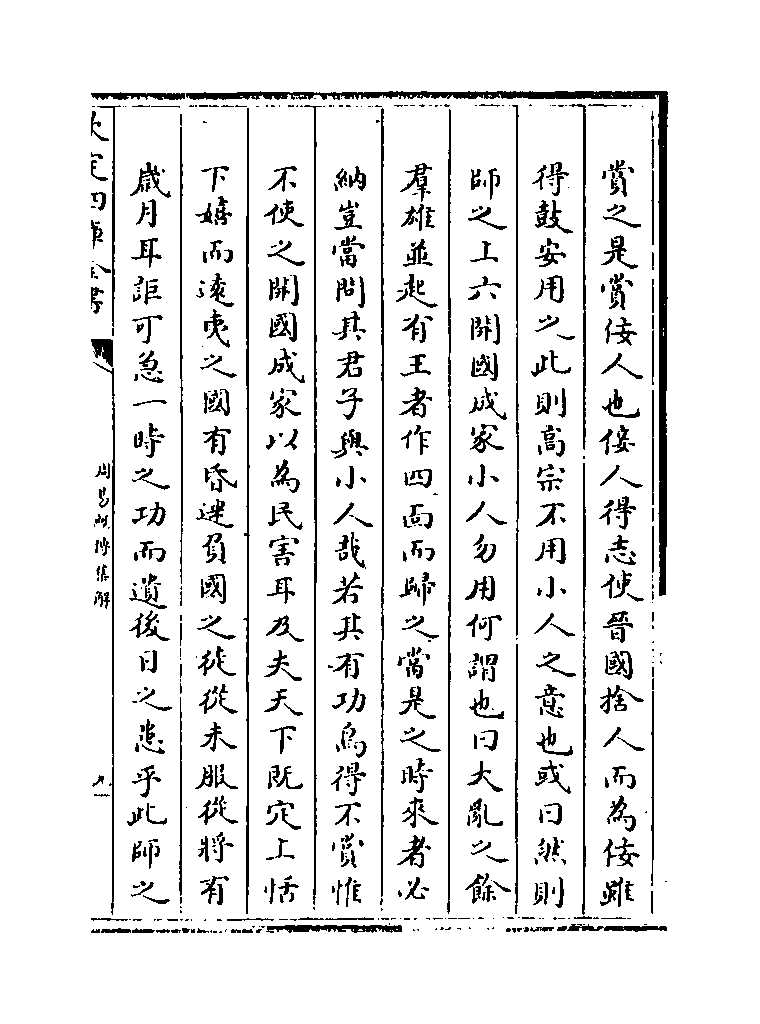 賞之是賞佞人也佞人得志使晉國捨人而為佞雖
得鼓安用之此則高宗不用小人之意也或曰然則
師之上六開國成家小人勿用何謂也曰大亂之餘
羣雄並起有王者作四面而歸之當是之時來者必
納豈當問其君子與小人哉若其有功烏得不賞惟
不使之開國成家以為民害耳及夫天下既定上恬
下嬉而遠夷之國有昏迷負國之徒從未服從將有
歲月耳詎可急一時之功而遺後日之患乎此師之
欽定四庫全書
周易經傳集解